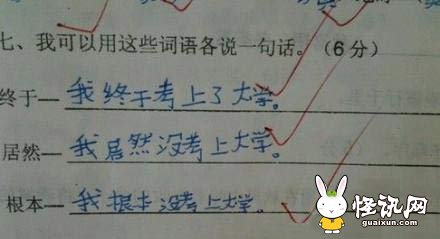 七、我可以用这些词语各说一句话。(6分)
终于—我终于考上了大学。
居然—我居然没考上大学。
根本—我根本没考上大学。
怪讯网
guaixun.com